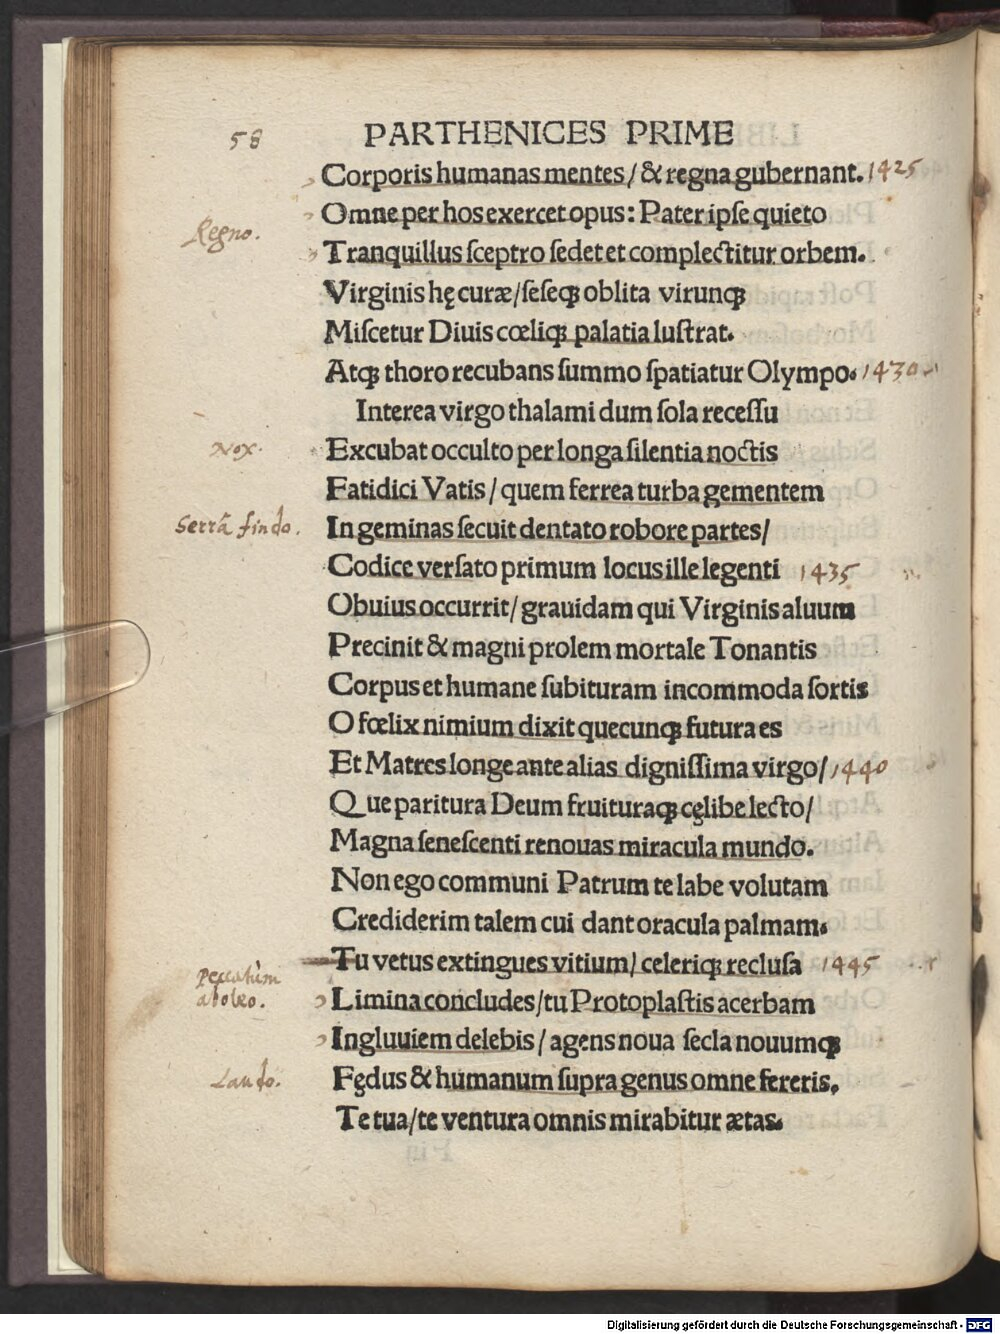 58 PARTHENICES PRIME
Corporis humanas mentes/ & regna gubernant. 1425
Omne per hos exercet opus: Pater ipſe quieto
Regno.
Tranquillus ſceptro ſedet et complectitur orbem.
Virginis hę curæ/ſeſeqꝫ oblita virunqꝫ
Miſcetur Diuis cœliqꝫ palatia luſtrat.
Atqꝫ thoro recubans ſummo ſpatiatur Olympo. 1430
Interea virgo thalami dum ſola receſſu
Nox. Excubat occulto per longa ſilentia noctis
Fatidici Vatis/ quem ferrea turba gementem
Serrā findo. In geminas ſecuit dentato robore partes/
Codice verſato primum locus ille legenti 1435
Obuius occurrit/ grauidam qui Virginis aluum
Precinit & magni prolem mortale Tonantis
Corpus et humane ſubituram incommoda ſortis
O fœlix nimium dixit quecunqꝫ futura es
Et Matres longe ante alias digniſſima virgo/ 1440
Que paritura Deum fruituraqꝫ cęlibe lecto/
Magna ſeneſcenti renouas miracula mundo.
Non ego communi Patrum te labe volutam
Crediderim talem cui dant oracula palmam.
Tu vetus extingues vitium/ celeriqꝫ recluſa 1445
Peccatum
aboleo.
Limina concludes/tu Protoplaſtis acerbam
Ingluuiem delebis/ agens noua ſecla nouumqꝫ
Laudo. Fędus & humanum ſupra genus omne fereris.
Te tua/te ventura omnis mirabitur ætas.
Digitalisierung gefördert durch die Deutsche Forschungsgemeinschaft - DFG